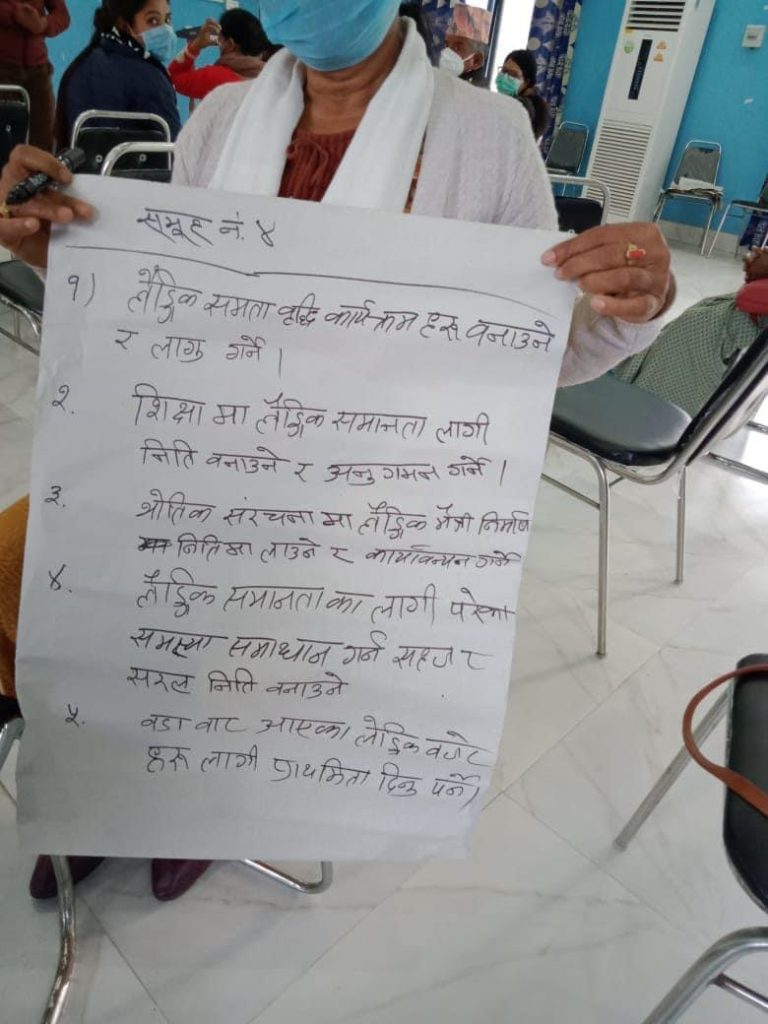 समूह नं. ४
१) लैङ्गिक समता वृद्धि कार्यक्रम हरू वनाउने
र लागु गर्ने ।
२. शिक्षा मा लैङ्गिक समानता लागी
निति वनाउने र अनुगमन गर्ने ।
३. भौतिक संरचना मा लैङ्गिक मैत्री निर्माण
नितिमा लाउने र कार्यावन्यन गर्ने
४. लैङ्गिक समानता का लागी परेका
समस्या समाधान गर्न सहज र
सरल निति वनाउने
५. वडा वाट आएका लैङ्गिक वजेट
हरू लागी प्राथमिता दिनु पर्ने।